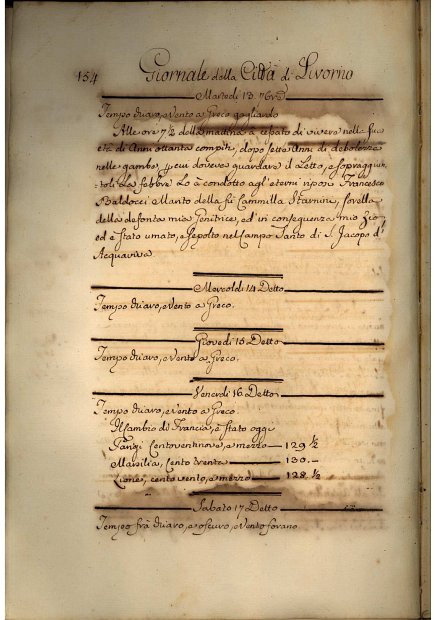 134 Giornale della Città di Livorno
Martedi 13. 
Tempo chiaro, e Vento a Greco gagliardo
Alle ore 7½ della matina a cessato di vivere nella sua
età di Anni ottanta compiti, dopo sette Anni di debolezza
nelle gambe, p cui doveva guardare il Letto, e sopraggiun-
toli la febbre Lo a condotto agl'eterni riposi Francesco
Baldocci Marito della fù Cammilla Starnini, sorella
della defonta mia Genitrice, ed in consequenza mio Zio
ed è stato umato, e sepolto nel Campo Santo di S. Jacopo d'
Acquaviva
Mercoldi 14 Detto
Tempo chiaro, e Vento a Greco.
Giovedi 15 Detto
Tempo chiaro, e Vento a Greco.
Venerdi 16 Detto
Tempo chiaro, e Vento a Greco
Il Cambio di Francia, è stato oggi
Parigi Centoventinove, e mezzo — 129 ½
Marsilia, Cento trenta — 130. —
Lione, centovento, e mezzo — 128. ½
Sabato 17 Detto
Tempo frà chiaro, e oscuro, e Vento forano